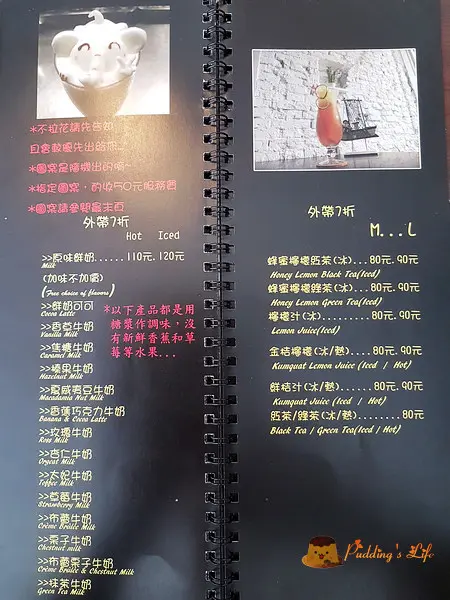 *不拉花請先告知
*圖案是隨機出的唷~
*指定圖案，酌收50元服務費
*圖案請參閱最末頁
外帶7折
Hot Iced
>>原味鮮奶......110元.120元
Milk
(加味不加價)
(Free choice of flavors)
>>鮮奶可可
Cocoa Latte
>>香草牛奶
Vanilla Milk
>>焦糖牛奶
Caramel Milk
>>榛果牛奶
Hazelnut Milk
>>夏威夷豆牛奶
Macadamia Nut Milk
>>香蕉巧克力牛奶
Banana & Cocoa Latte
>>玫瑰牛奶
Ross Milk
>>杏仁牛奶
Orgeat Milk
>>太妃牛奶
Toffee Milk
>>草莓牛奶
Strawberry Milk
>>布蕾牛奶
Crème Brulee Milk
>>栗子牛奶
Chestnut milk
>>布蕾栗子牛奶
Crème Brulee & Chestnut Milk
>>抹茶牛奶
Green Tea Milk
*以下產品都是用
糖漿作調味，沒
有新鮮香蕉和草
莓等水果...
外帶7折
M...L
蜂蜜檸檬紅茶(冰)...80元.90元
Honey Lemon Black Tea(Iced)
蜂蜜檸檬綠茶(冰)...80元.90元
Honey Lemon Green Tea(Iced)
檸檬汁(冰).........80元.90元
Lemon Juice(Iced)
金桔檸檬(冰/熱)....80元.90元
Kumquat Lemon Juice(Iced / Hot)
鮮桔汁(冰/熱)......80元.90元
Kumquat Juice(Iced / Hot)
紅茶/綠茶(冰/熱)........80元
Black Tea / Green Tea(Iced / Hot)
Pudding's Life